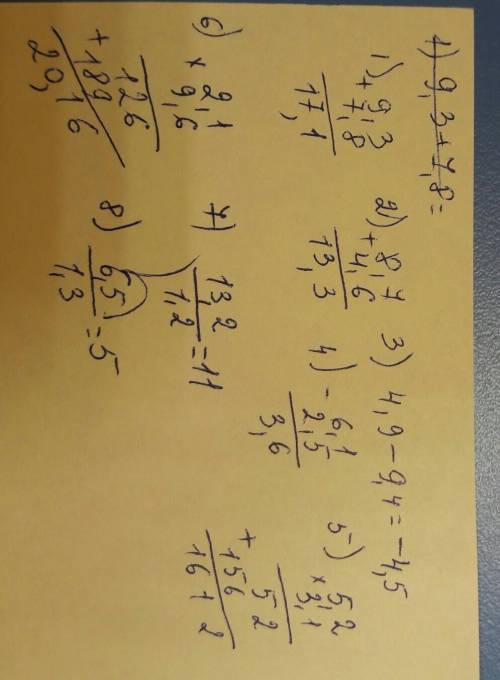 1) 9,3+7,8=
1) + 9,3
7,8
17,1
2) + 8,7
4,6
13,3
3) 4,9-9,4=-4,5
4) - 6,1
2,5
3,6
5) × 5,2
3,1
52
+
156
1612
6) × 2,1
9,6
126
+189
20,16
7) 13,2
1,2
=11
8) 6,5
1,3
=5